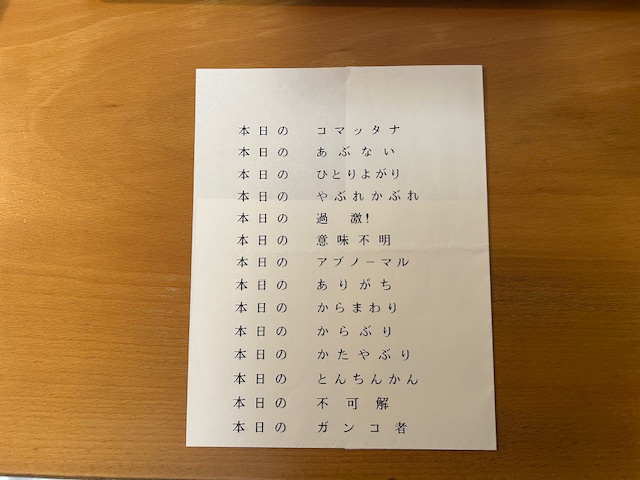 本日の コマッタナ
本日の あぶない
本日の ひとりよがり
本日の やぶれかぶれ
本日の 過激!
本日の 意味不明
本日の アブノーマル
本日の ありがち
本日の からまわり
本日の からぶり
本日の かたやぶり
本日の とんちんかん
本日の 不可解
本日の ガンコ者